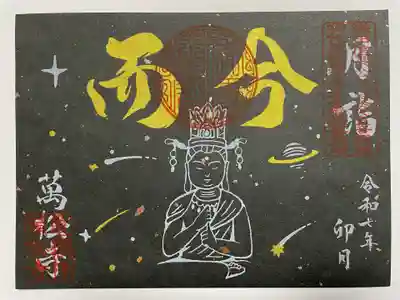 月詣
令和七年
卯月
而今
萬松寺